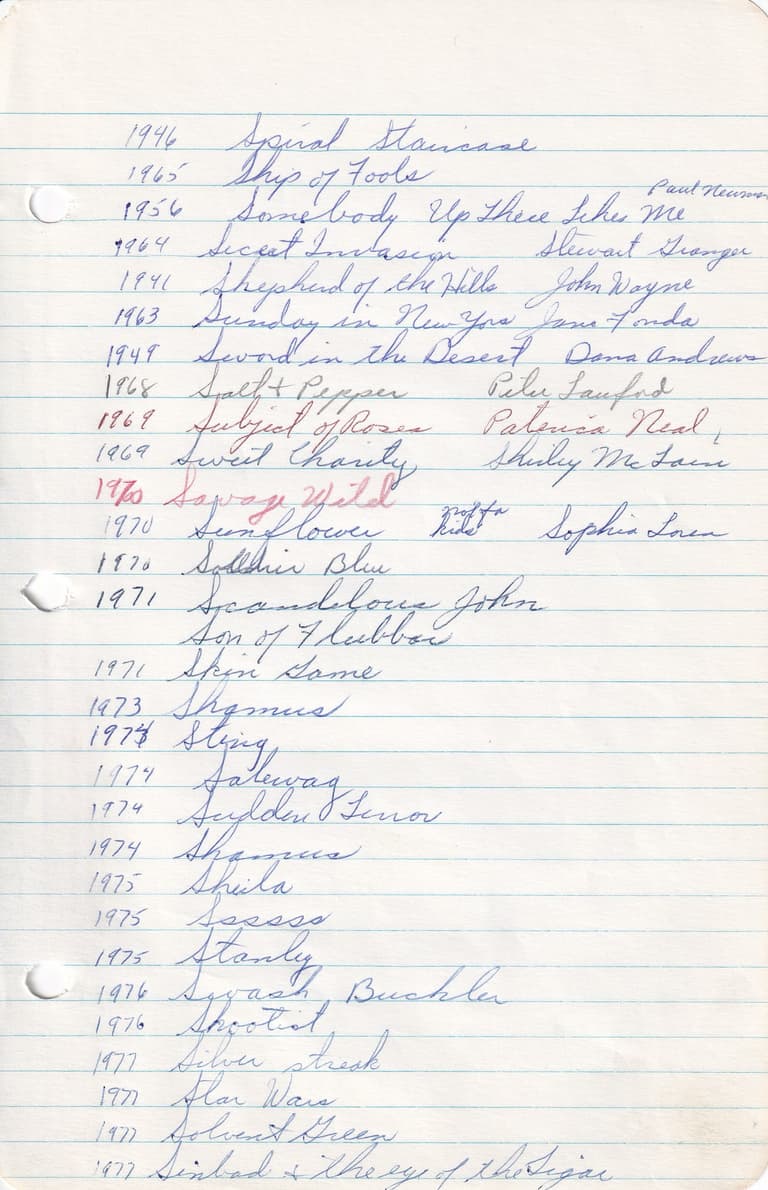 1946 Spiral Staircase
1965 Ship of Fools
Paul Newman
1956 Somebody Up There Likes Me
1964 Secret Invasion Stewart Granger
1941 Shepherd of the Hills John Wayne
1963 Sunday in New York Jane Fonda
1949 Sword in the Desert Dana Andrews
1968 Salt & Pepper Peter Lawford
1969 Subject of Roses Patricia Neal
1969 Sweet Charity Shirley McLain
1970 Savage Wild
not for
1970 Sunflower kids Sophia Loren
1970 Soldier Blue
1971 Scandelous John
Son of Flubbar
1971 Skin Game
1973 Shamus
1974 Sting
1974 Salewag
1974 Sudden Terror
1974 Shamus
1975 Sheila
1975 Ssssss
1975 Stanley
1976 Swash Buckler
1976 Shootist
1977 Silver streak
1977 Star Wars
1977 Solvent Green
1977 Sinbad & the eye of the Tigar